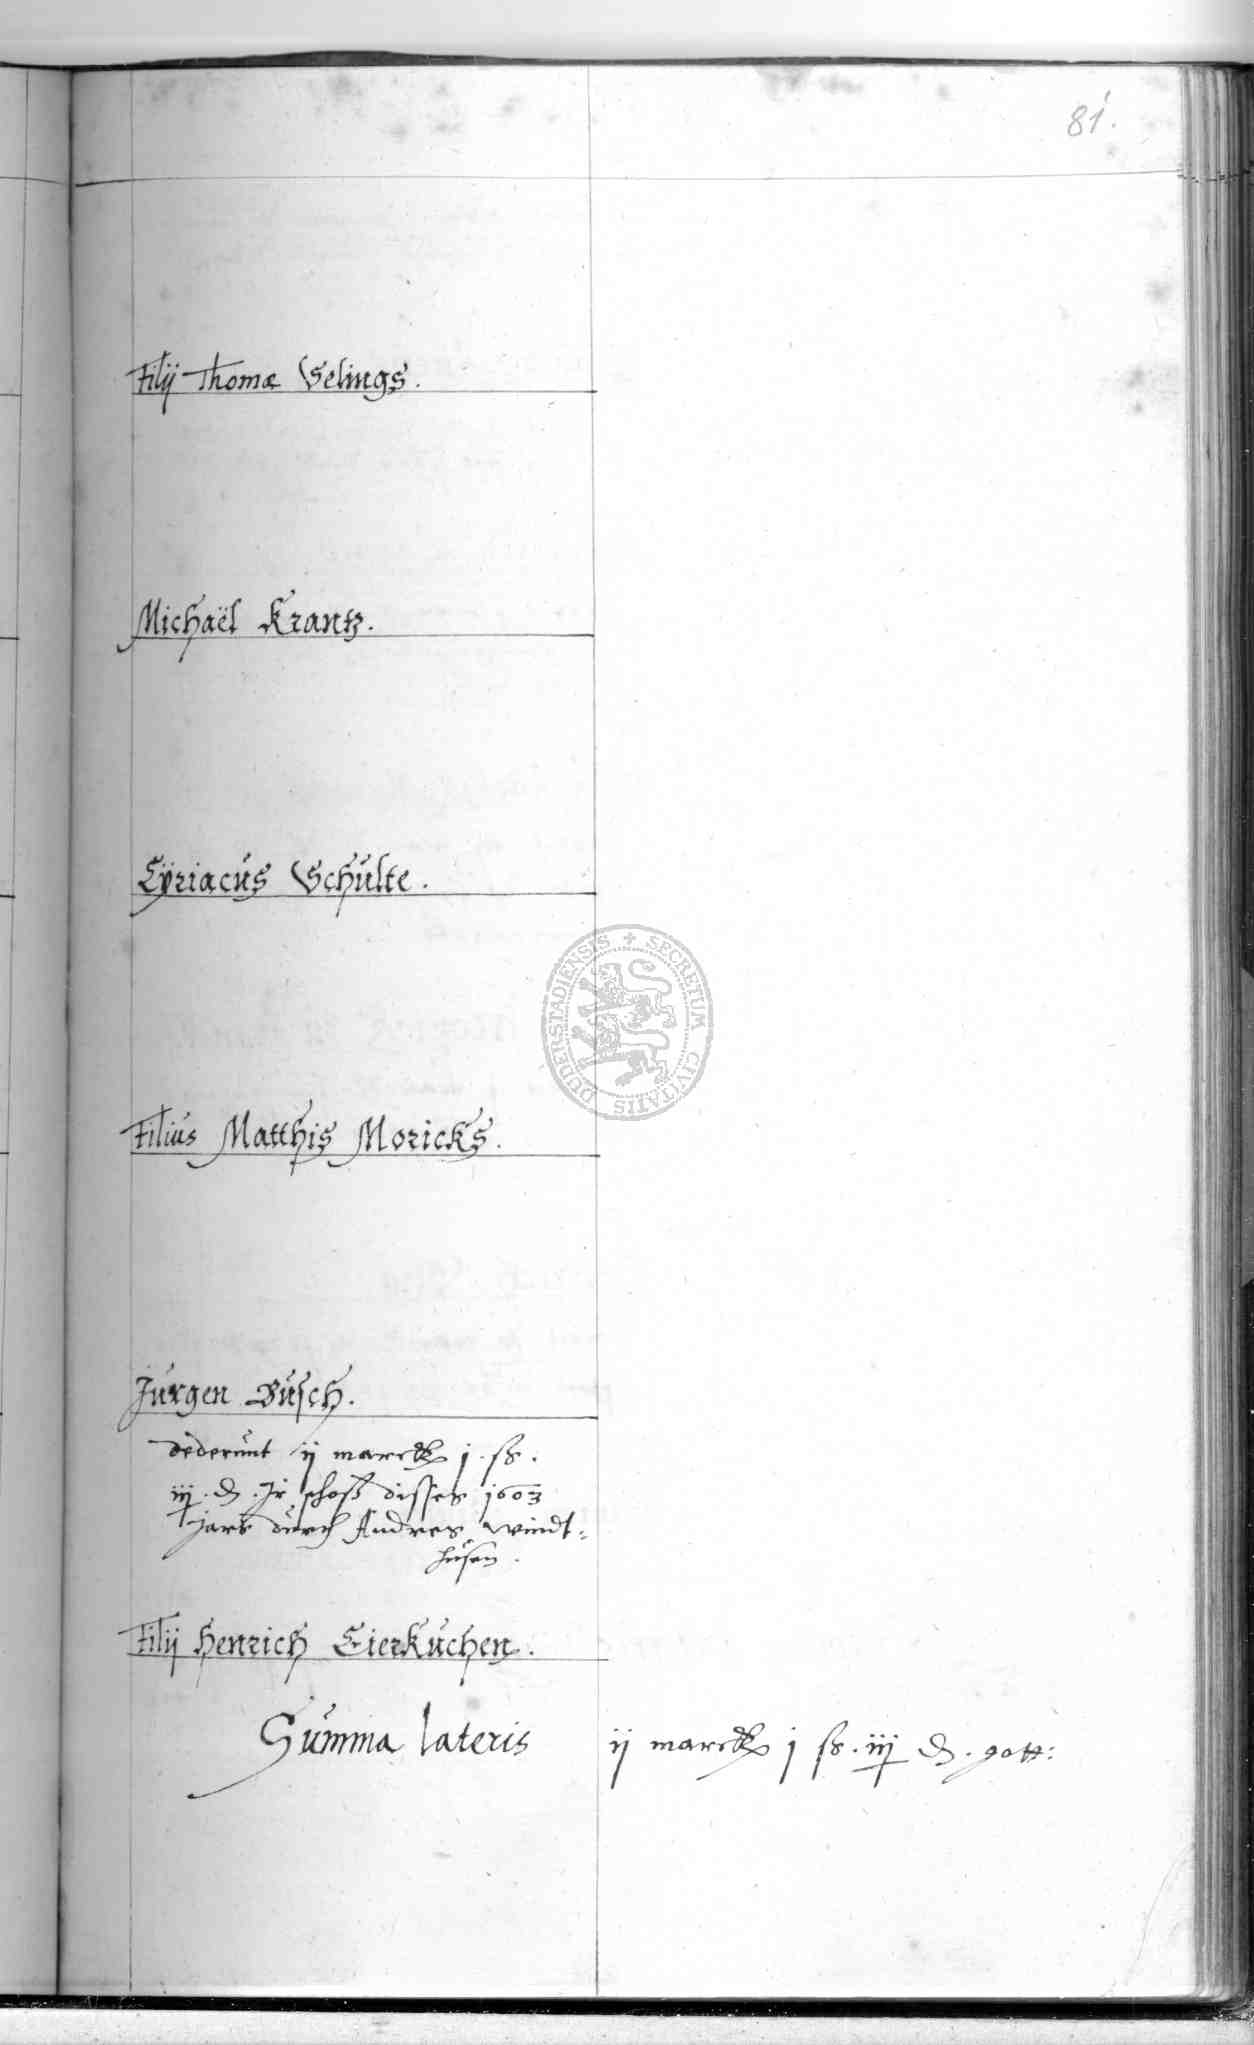 81.
Filij Thomæ Selings.
Michaël Krantz.
Cÿriacus Schulte.
DUDERSTADIENSIS + SECRETUM CIVITATIS
Filius Matthis Moricks.
Jurgen Busch.
dederunt ij marck j. ß.
iij. d. Jr schoß disses 1603
Jars durch Andres Windt=
husen.
Filij Henrich Eierkuchen.
Summa lateris ij marck j ß. iij d. gott: